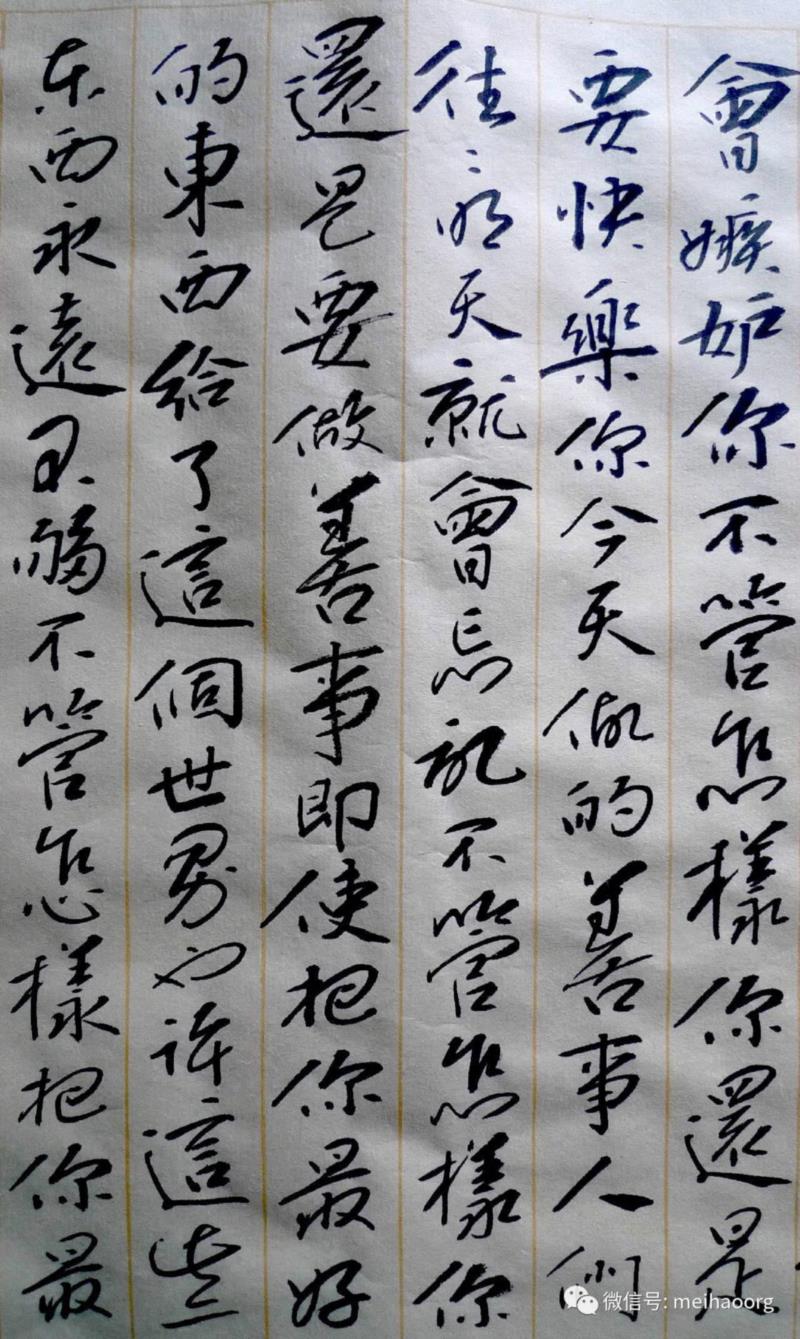 會嫉妒你不管怎樣你還是
要快樂你今天做的善事人們
往往明天就會忘記不管怎樣你
還是要做善事即使把你最好
的東西給了這個世界也許這些
东西永遠不够不管怎樣把你最
微信号: meihaoorg